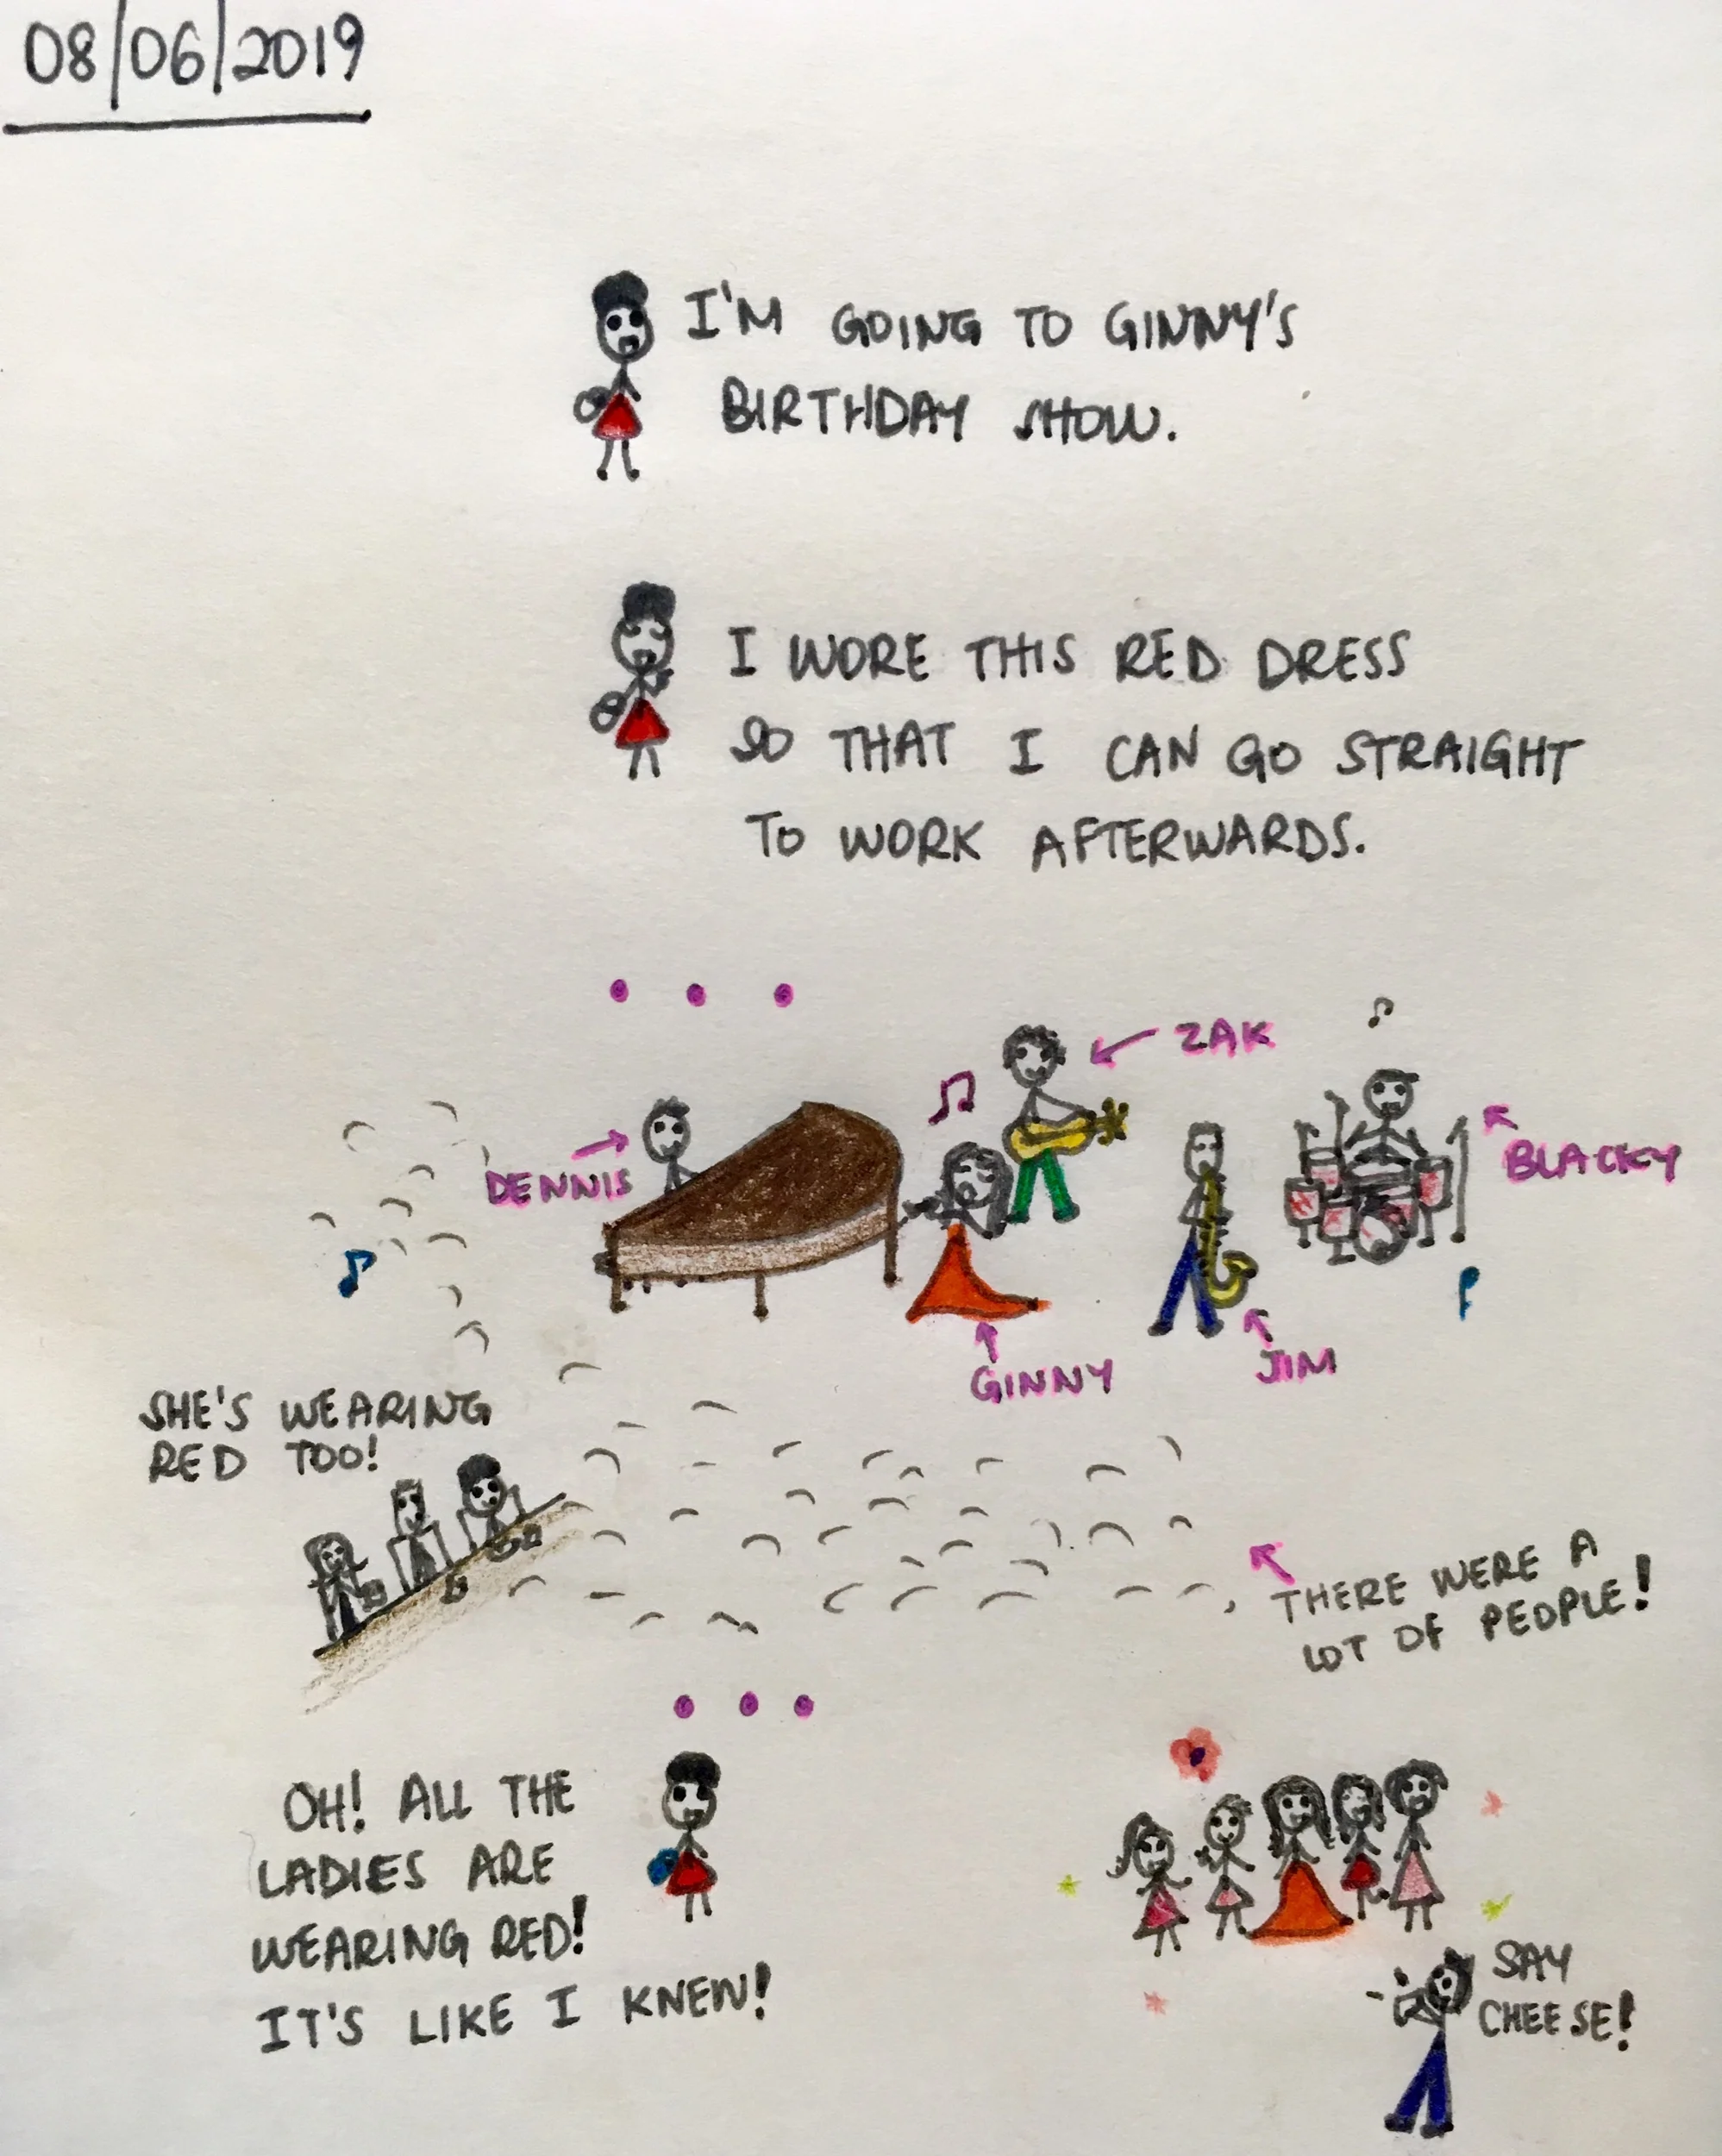 08/06/2019
I'M GOING TO GINNY'S
BIRTHDAY SHOW.
I WORE THIS RED DRESS
SO THAT I CAN GO STRAIGHT
TO WORK AFTERWARDS.
ZAK
DENNIS
BLACKY
GINNY
JIM
SHE'S WEARING
RED TOO!
THERE WERE A
LOT OF PEOPLE!
OH! ALL THE
LADIES ARE
WEARING RED!
IT'S LIKE I KNEW!
SAY
CHEESE!